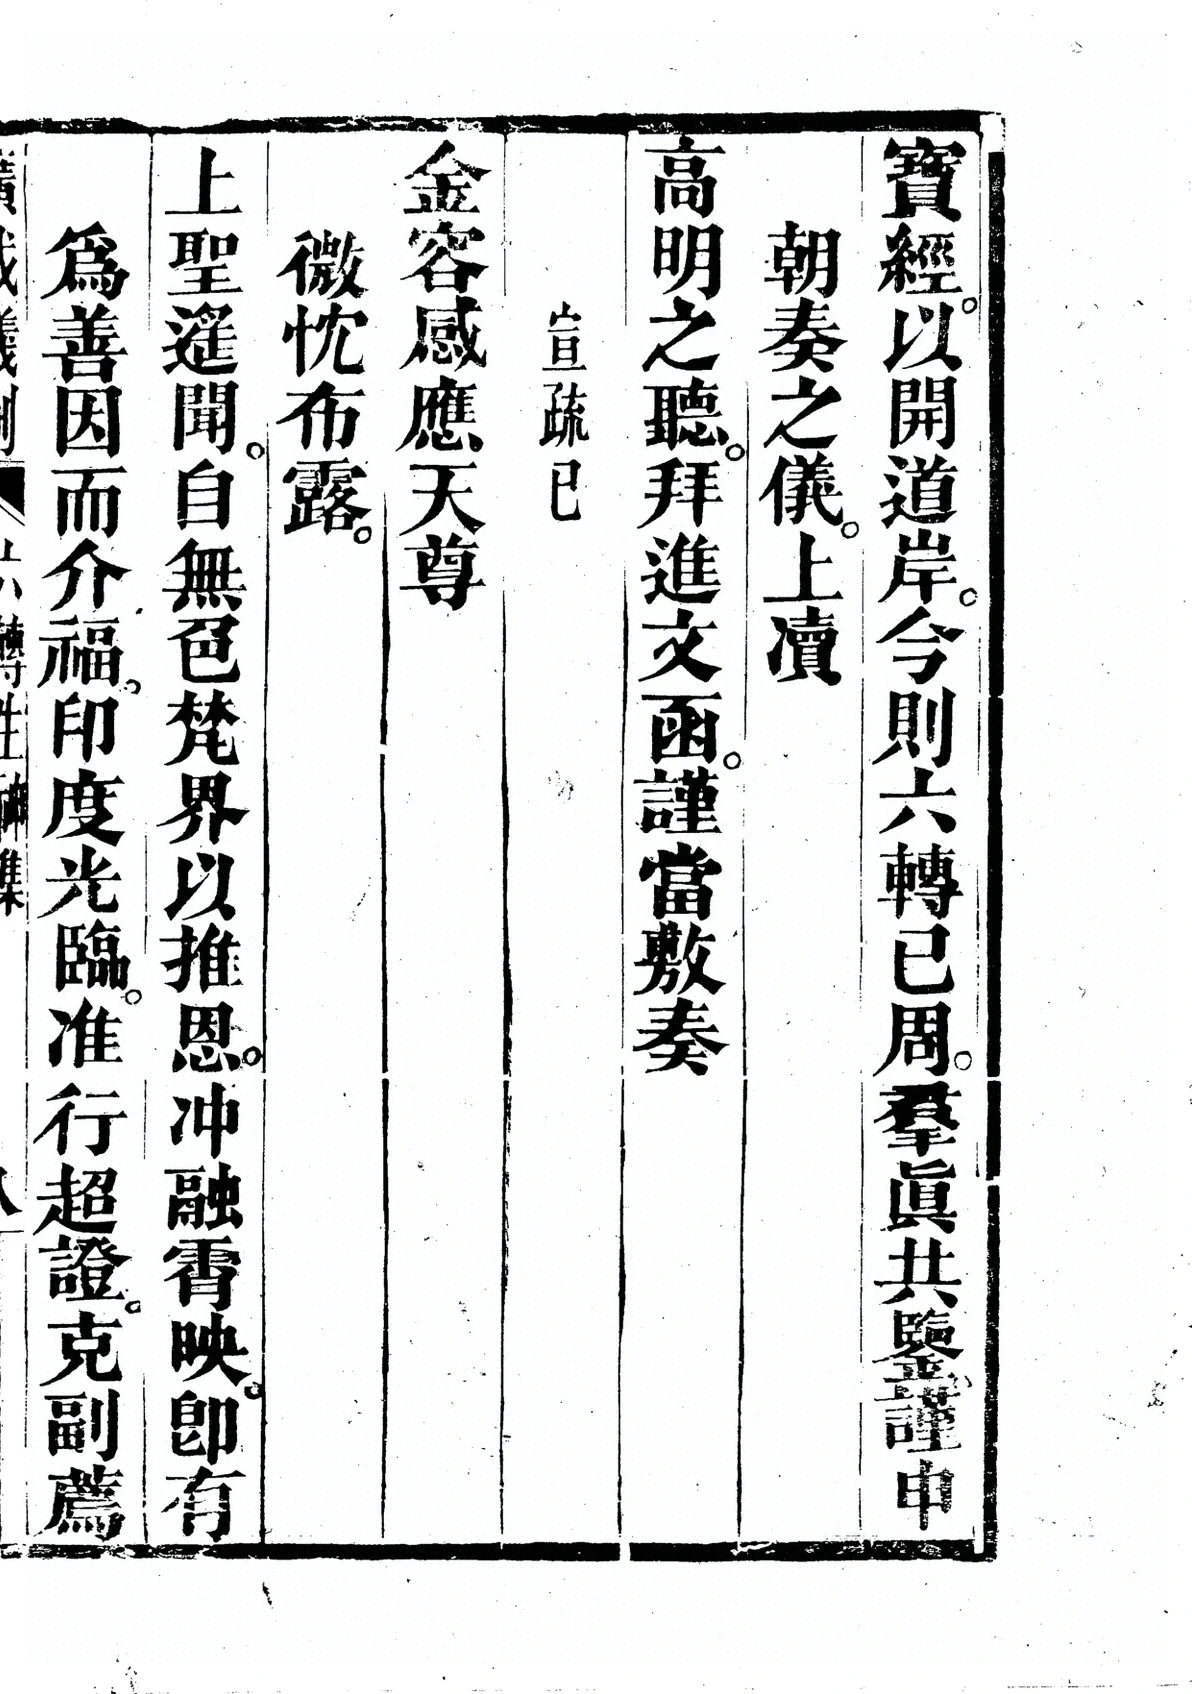 寶經。以開道岸。今則六轉已周。羣眞共鑒謹申
朝奏之儀。上凟
高明之聽。拜進文函。謹當敷奏
宣疏已
金容感應天尊
微忱布露。
上聖遥聞。自無色梵界以推恩。冲融霄映。卽有
爲善因而介福。印度光臨。准行超證。克副薦
廣成儀制 六轉生神集
八